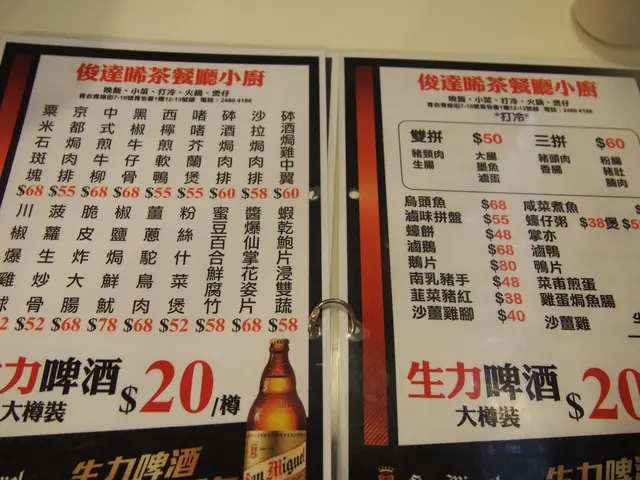 俊達晞茶餐廳小廚
晚飯、小菜、打冷、火鍋、煲仔
青衣青綠街7-19號青怡薈1樓12-13號舖 電話：2480 4188
砵酒焗雞中翼 $60
沙拉焗肉排 $58
砵酒焗肉排 $60
啫啫芥蘭煲 $55
西檸煎軟鴨 $55
黑椒牛仔骨 $68
中式煎牛柳 $58
京都焗肉排 $55
粟米石斑塊 $68
蝦乾鮑片浸雙蔬 $58
醬爆仙掌花姿片 $68
蜜豆百合鮮腐竹 $58
粉絲什菜煲 $52
薑蔥鴕鳥肉 $68
椒鹽鮮魷 $78
脆皮炸大腸 $68
菠蘿生炒骨 $52
川椒爆雞球 2
力啤酒 $20/樽
大樽裝
生力啤酒
San Miguel
俊達晞茶餐廳小廚
晚飯、小菜、打冷、火鍋、煲仔
青衣青綠街7-19號青怡薈1樓12-13號舖 電話：2480 4188
*打冷*
雙拼 $50 三拼 $60
豬頸肉 大腸 豬頭肉 粉腸
生腸 墨魚 香腸 豬肚
滷蛋 腩肉
烏頭魚 $68 咸菜煮魚 $
滷味拼盤 $55 蠔仔粥 $38煲$5
蠔餅 $48 掌亦
滷鵝 $68 滷鴨
鵝片 $80 鴨片
南乳豬手 $48 菜甫煎蛋
韮菜豬紅 $38 雞蛋焗魚腸
沙薑雞腳 $40 沙薑雞
生力啤酒 $20
大樽裝
生力啤酒